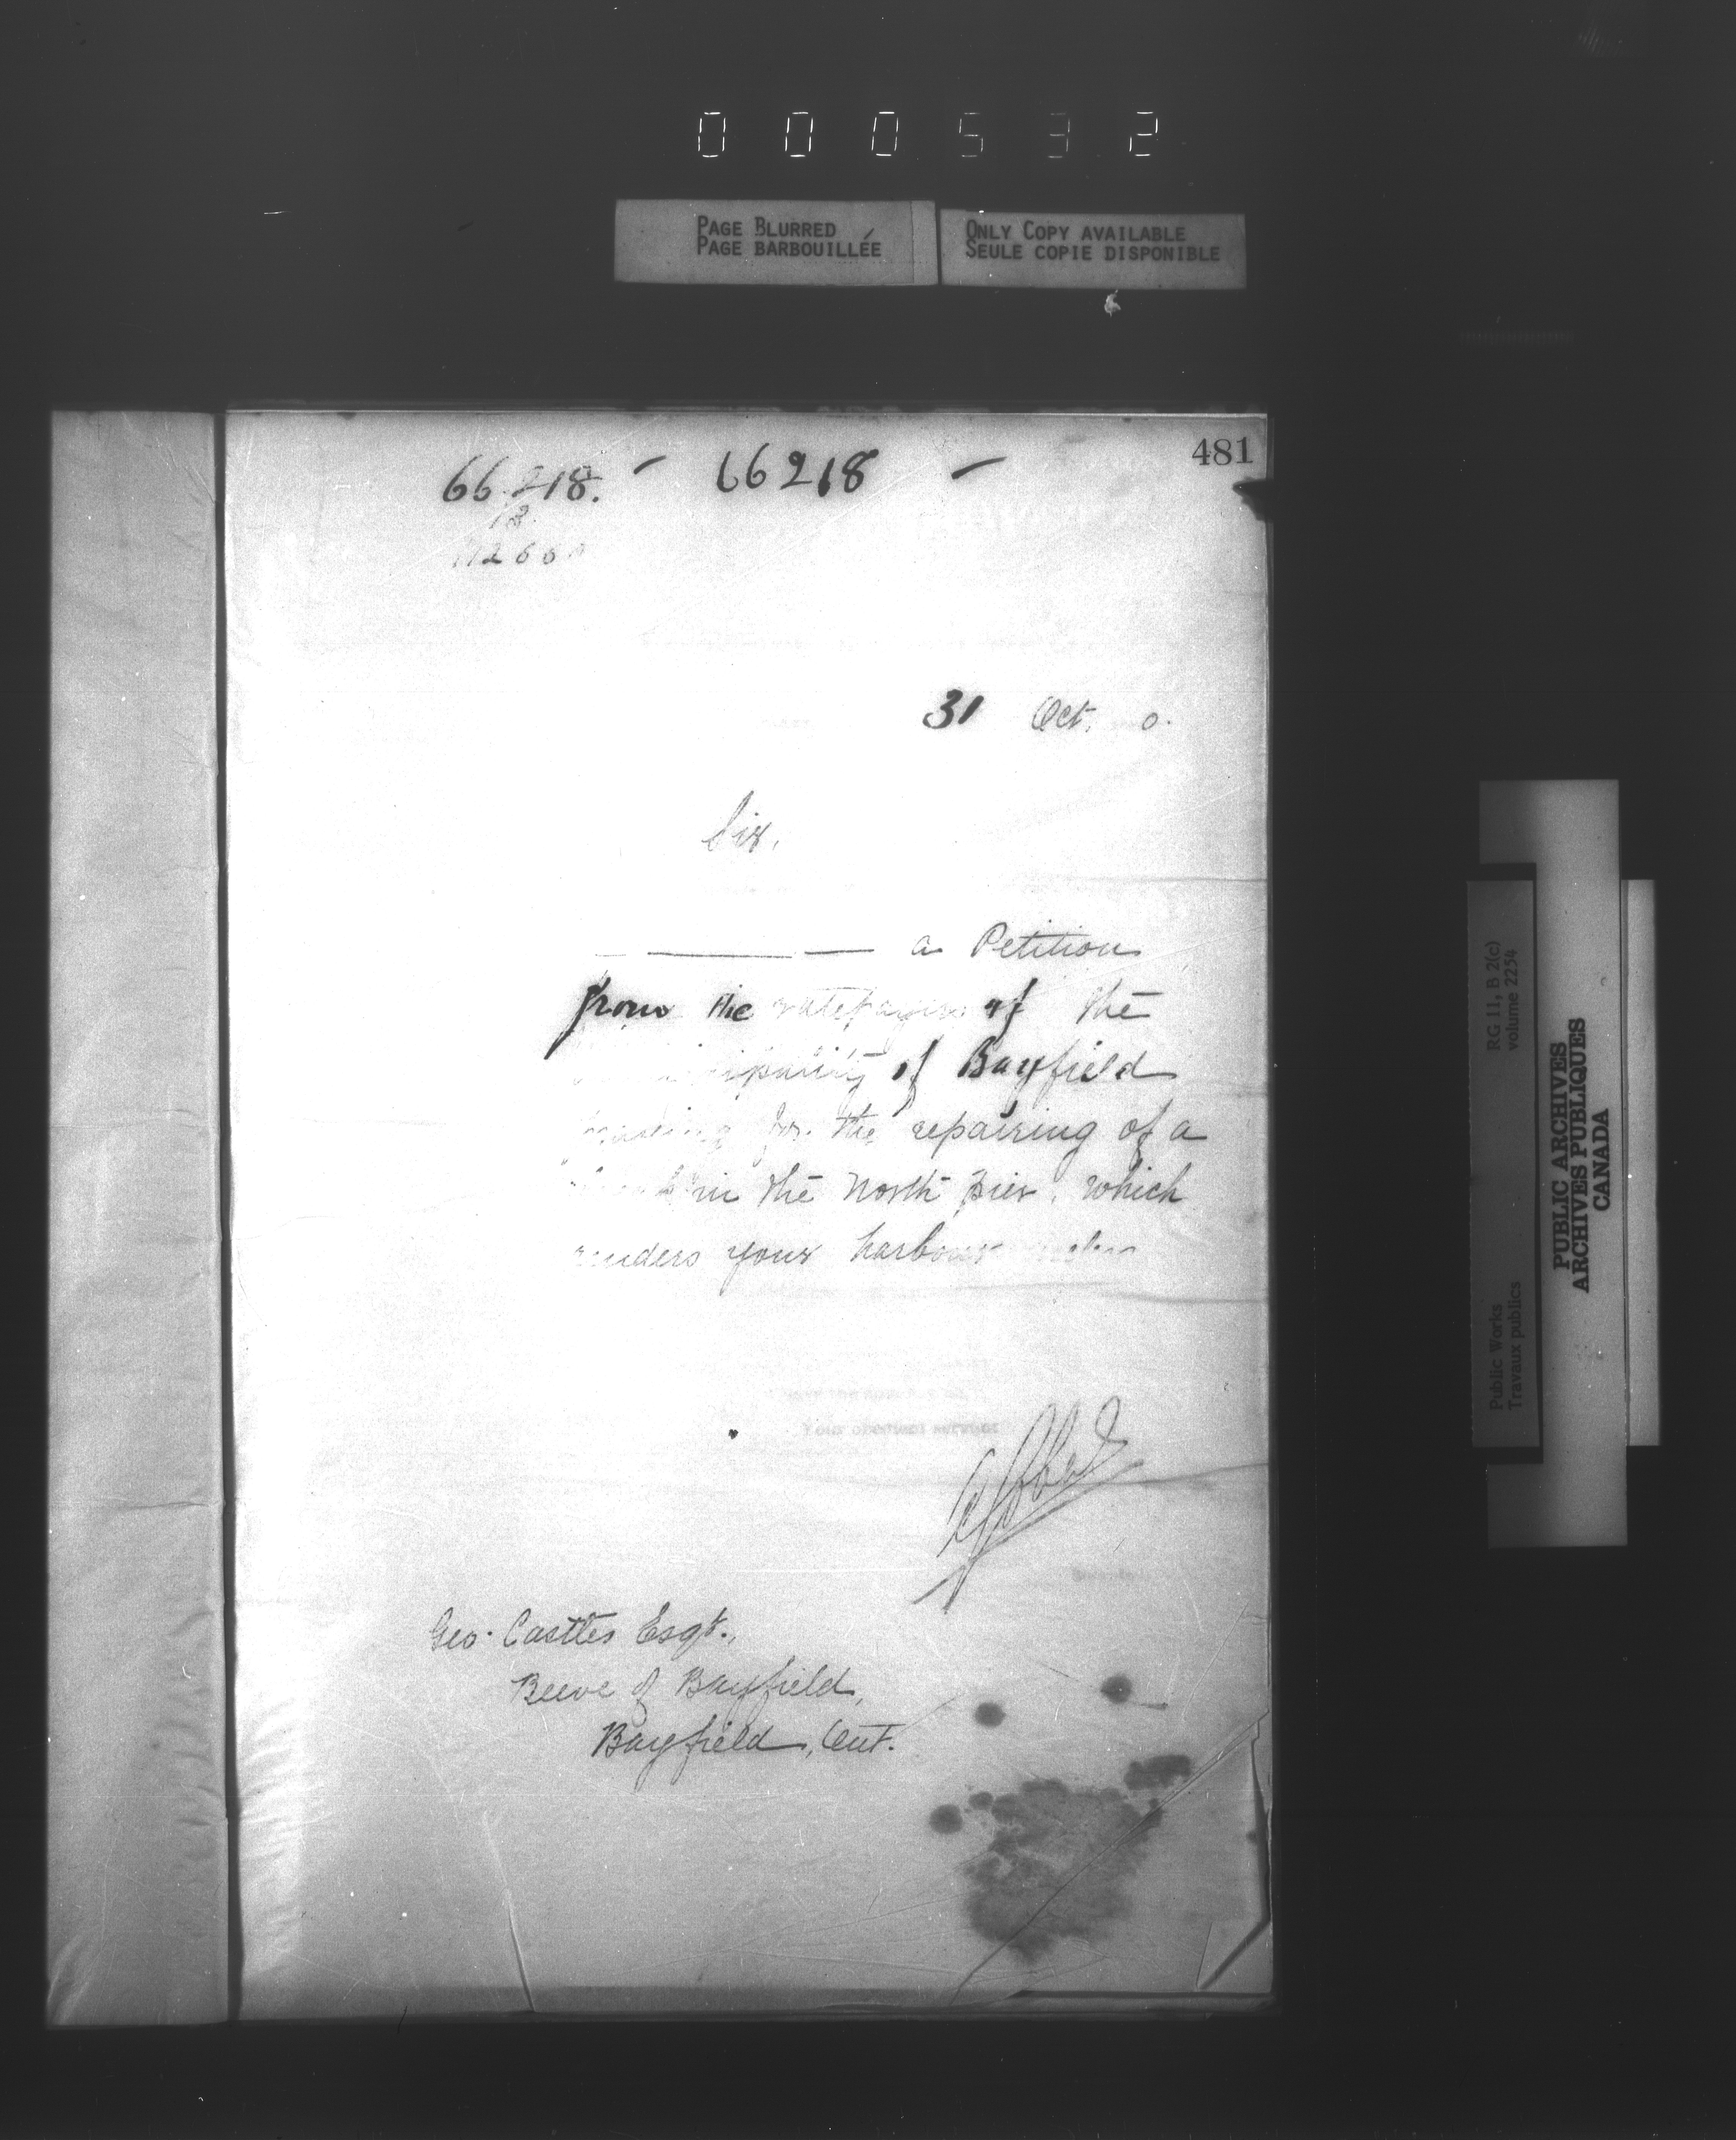 000532
PAGE BLURRED
PAGE BARBOUILLÉE
ONLY COPY AVAILABLE
SEULE COPIE DISPONIBLE
481
66.218. - 66218 -
31 Oct. 0.
Sir,
a Petition
from the ratepayers of the
of Bayfield
for the repairing of a
in the North pier, which
renders your harbour
Your obedient servant
Geo. Castles Esqr.,
Reeve of Bayfield,
Bayfield, Ont.
RG 11, B 2(c)
volume 2254
Public Works
Travaux publics
PUBLIC ARCHIVES
ARCHIVES PUBLIQUES
CANADA